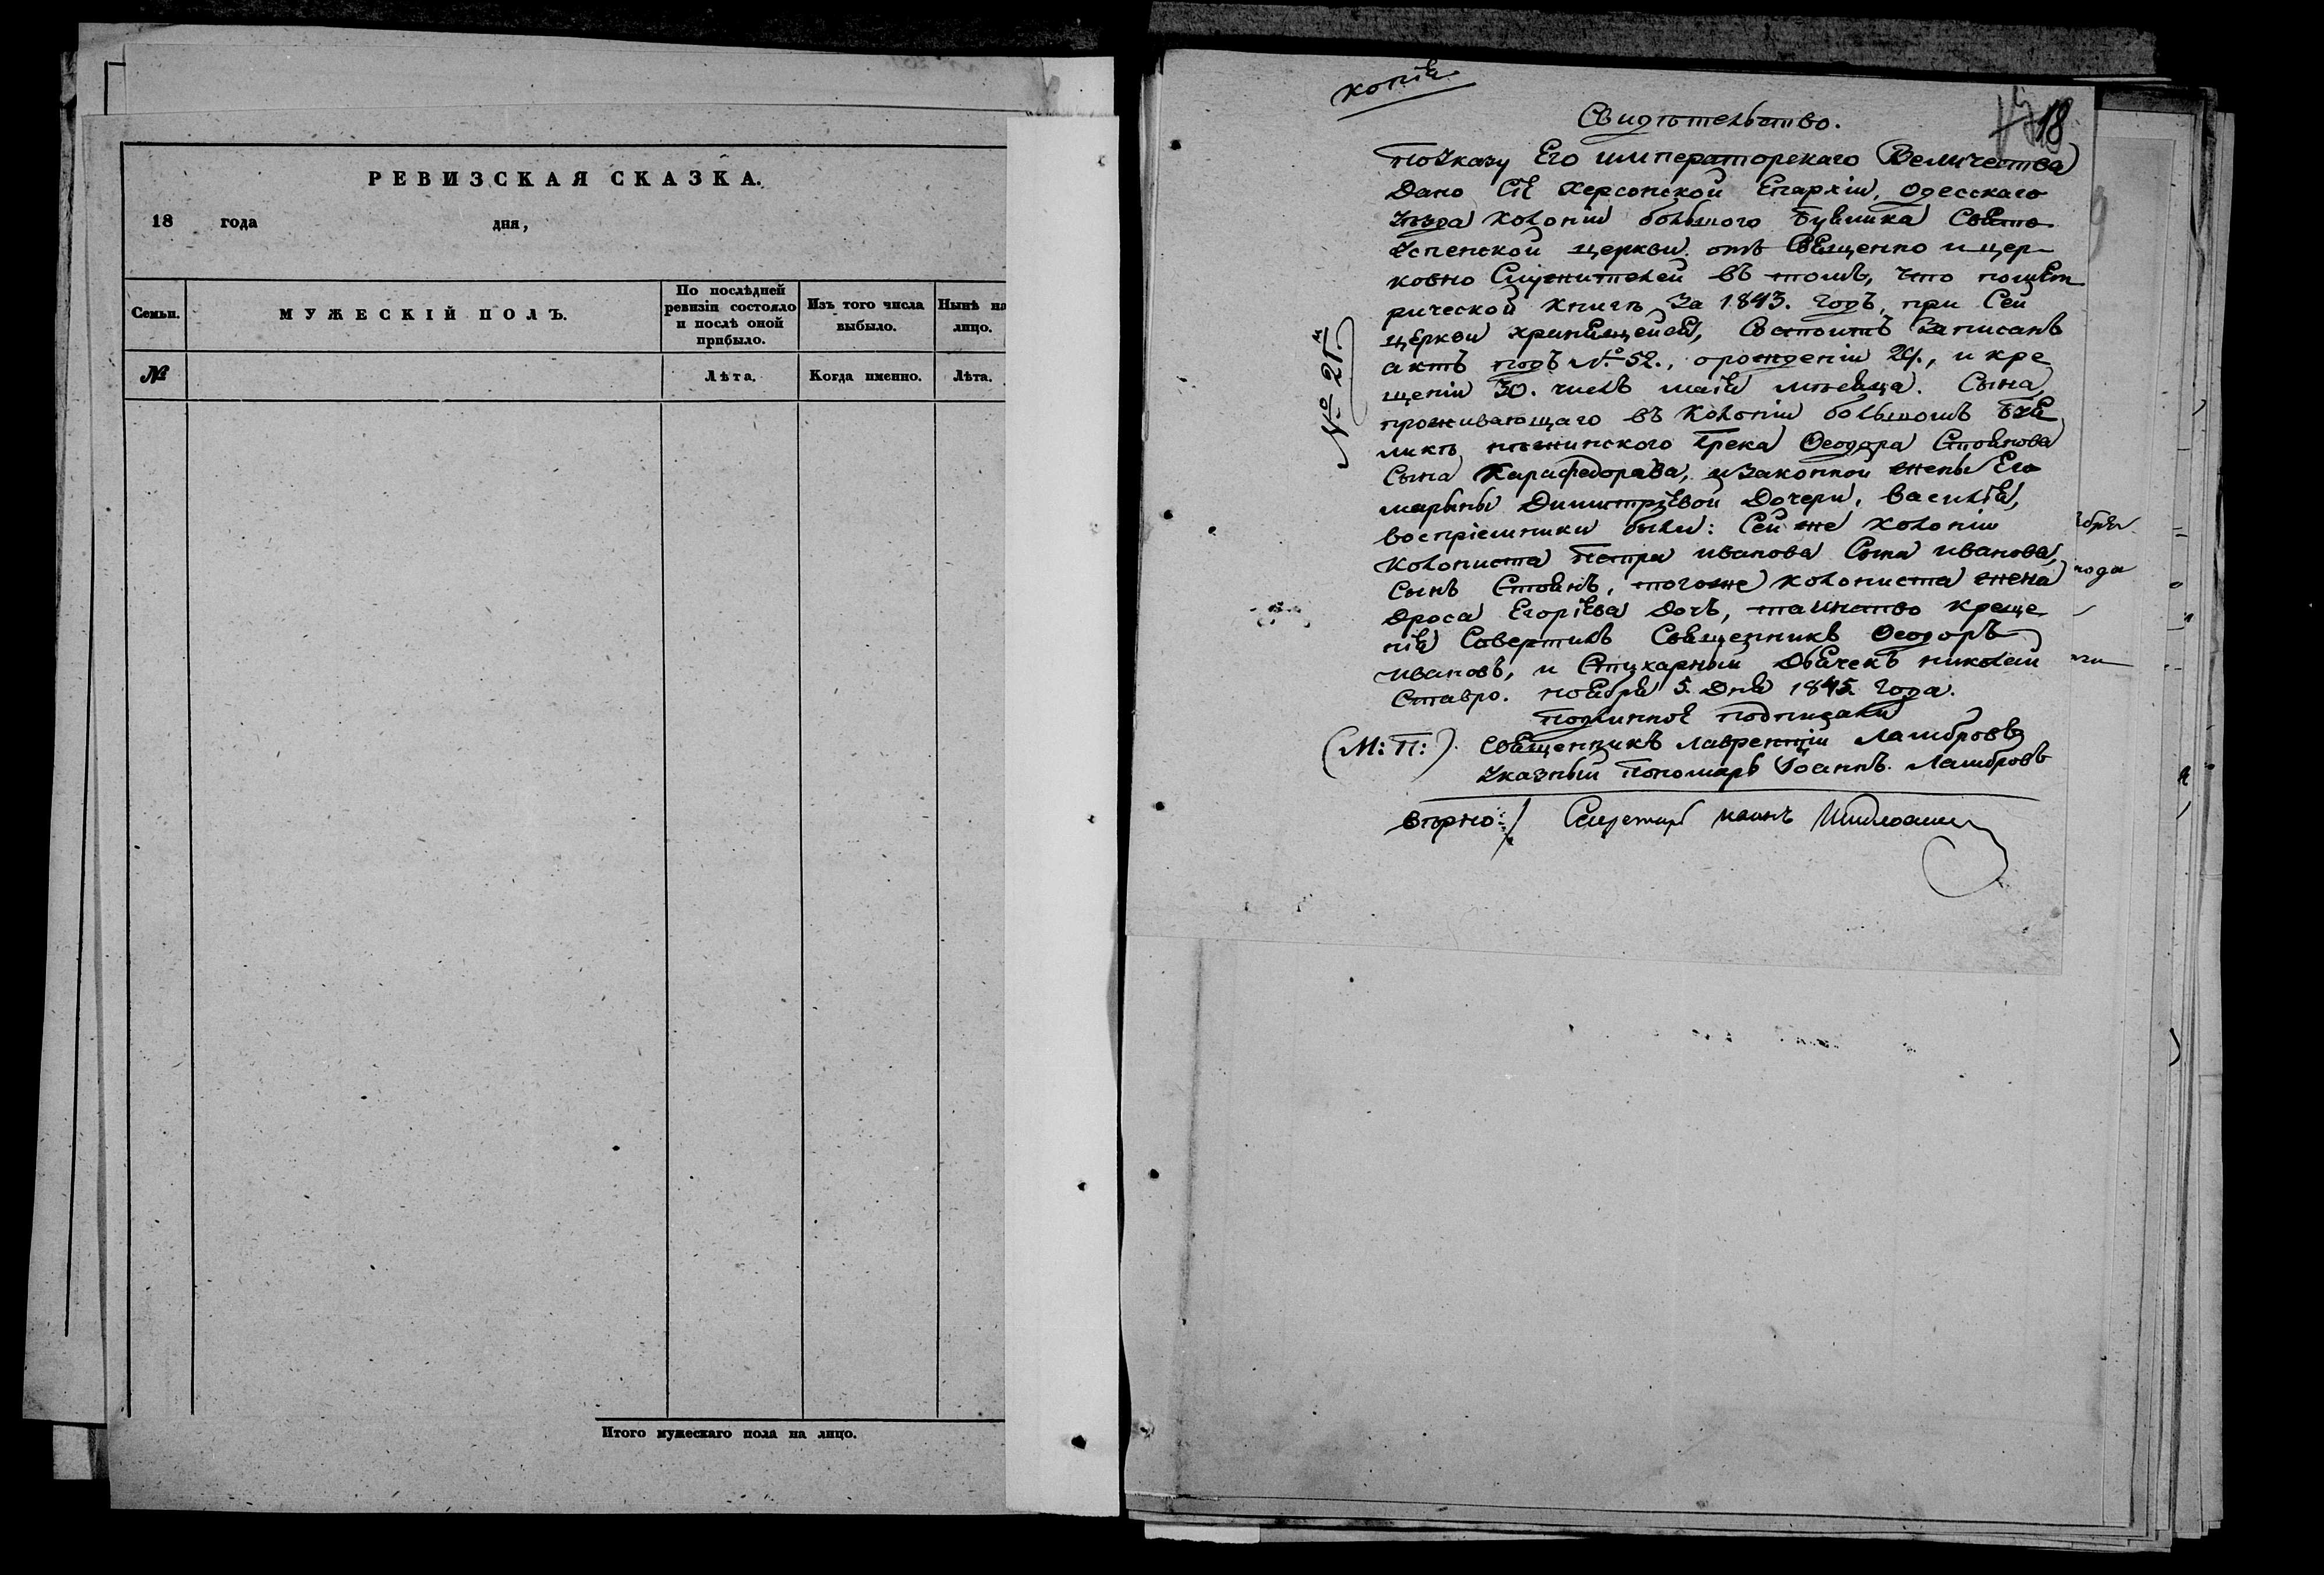 РЕВИЗСКАЯ СКАЗКА.
18 года дня,
Семьи.
МУЖЕСКІЙ ПОЛЪ.
По послѣдней
ревизіи состояло
и послѣ оной
прибыло.
Изъ того числа
выбыло.
Нынѣ на
лицо.
№
Лѣта.
Когда именно.
Лѣта.
Итого мужескаго пола на лицо.
копія
18
Свидѣтельство.
По Указу Его императорскаго Величества
Дано Сіе Херсонской Епархіи, Одесскаго
Уѣзда Колоніи большого Буялика Свято
Успенской церкви отъ Священно и цер-
ковно Служителей въ томъ, что помет
рической книгѣ За 1843. Годъ, при Сей
церкви хранящейся, Состоитъ Записанъ
актъ подъ №52., орожденіи 24., и кре
щеніи 30. числъ маія мѣсяца. Сына,
проживающаго въ Колоніи большомъ Буя
ликѣ нѣжинского Грека Феодора Стоянова
Сына Карафедорава, и Законной жены Его
марыны Димитріевой Дочери, Василія,
воспріемники были: Сей же Колоніи
Колониста Петра иванова Сына иванова,
Сынъ Стоянъ, тогоже колониста жена
Дроса Егоріева Дочъ, таинство креще
нія Совершилъ Священникъ Феодоръ
ивановъ, и Стихарный Дьячекъ николай
Ставро. ноября 5. Дня 1845. Года.
Подлинное подписали
(М: П:). Священникъ лаврентій Ламбровъ
Указный Пономарь Іоаннъ Ламбровъ
№ 21.
вѣрно: Секретарь